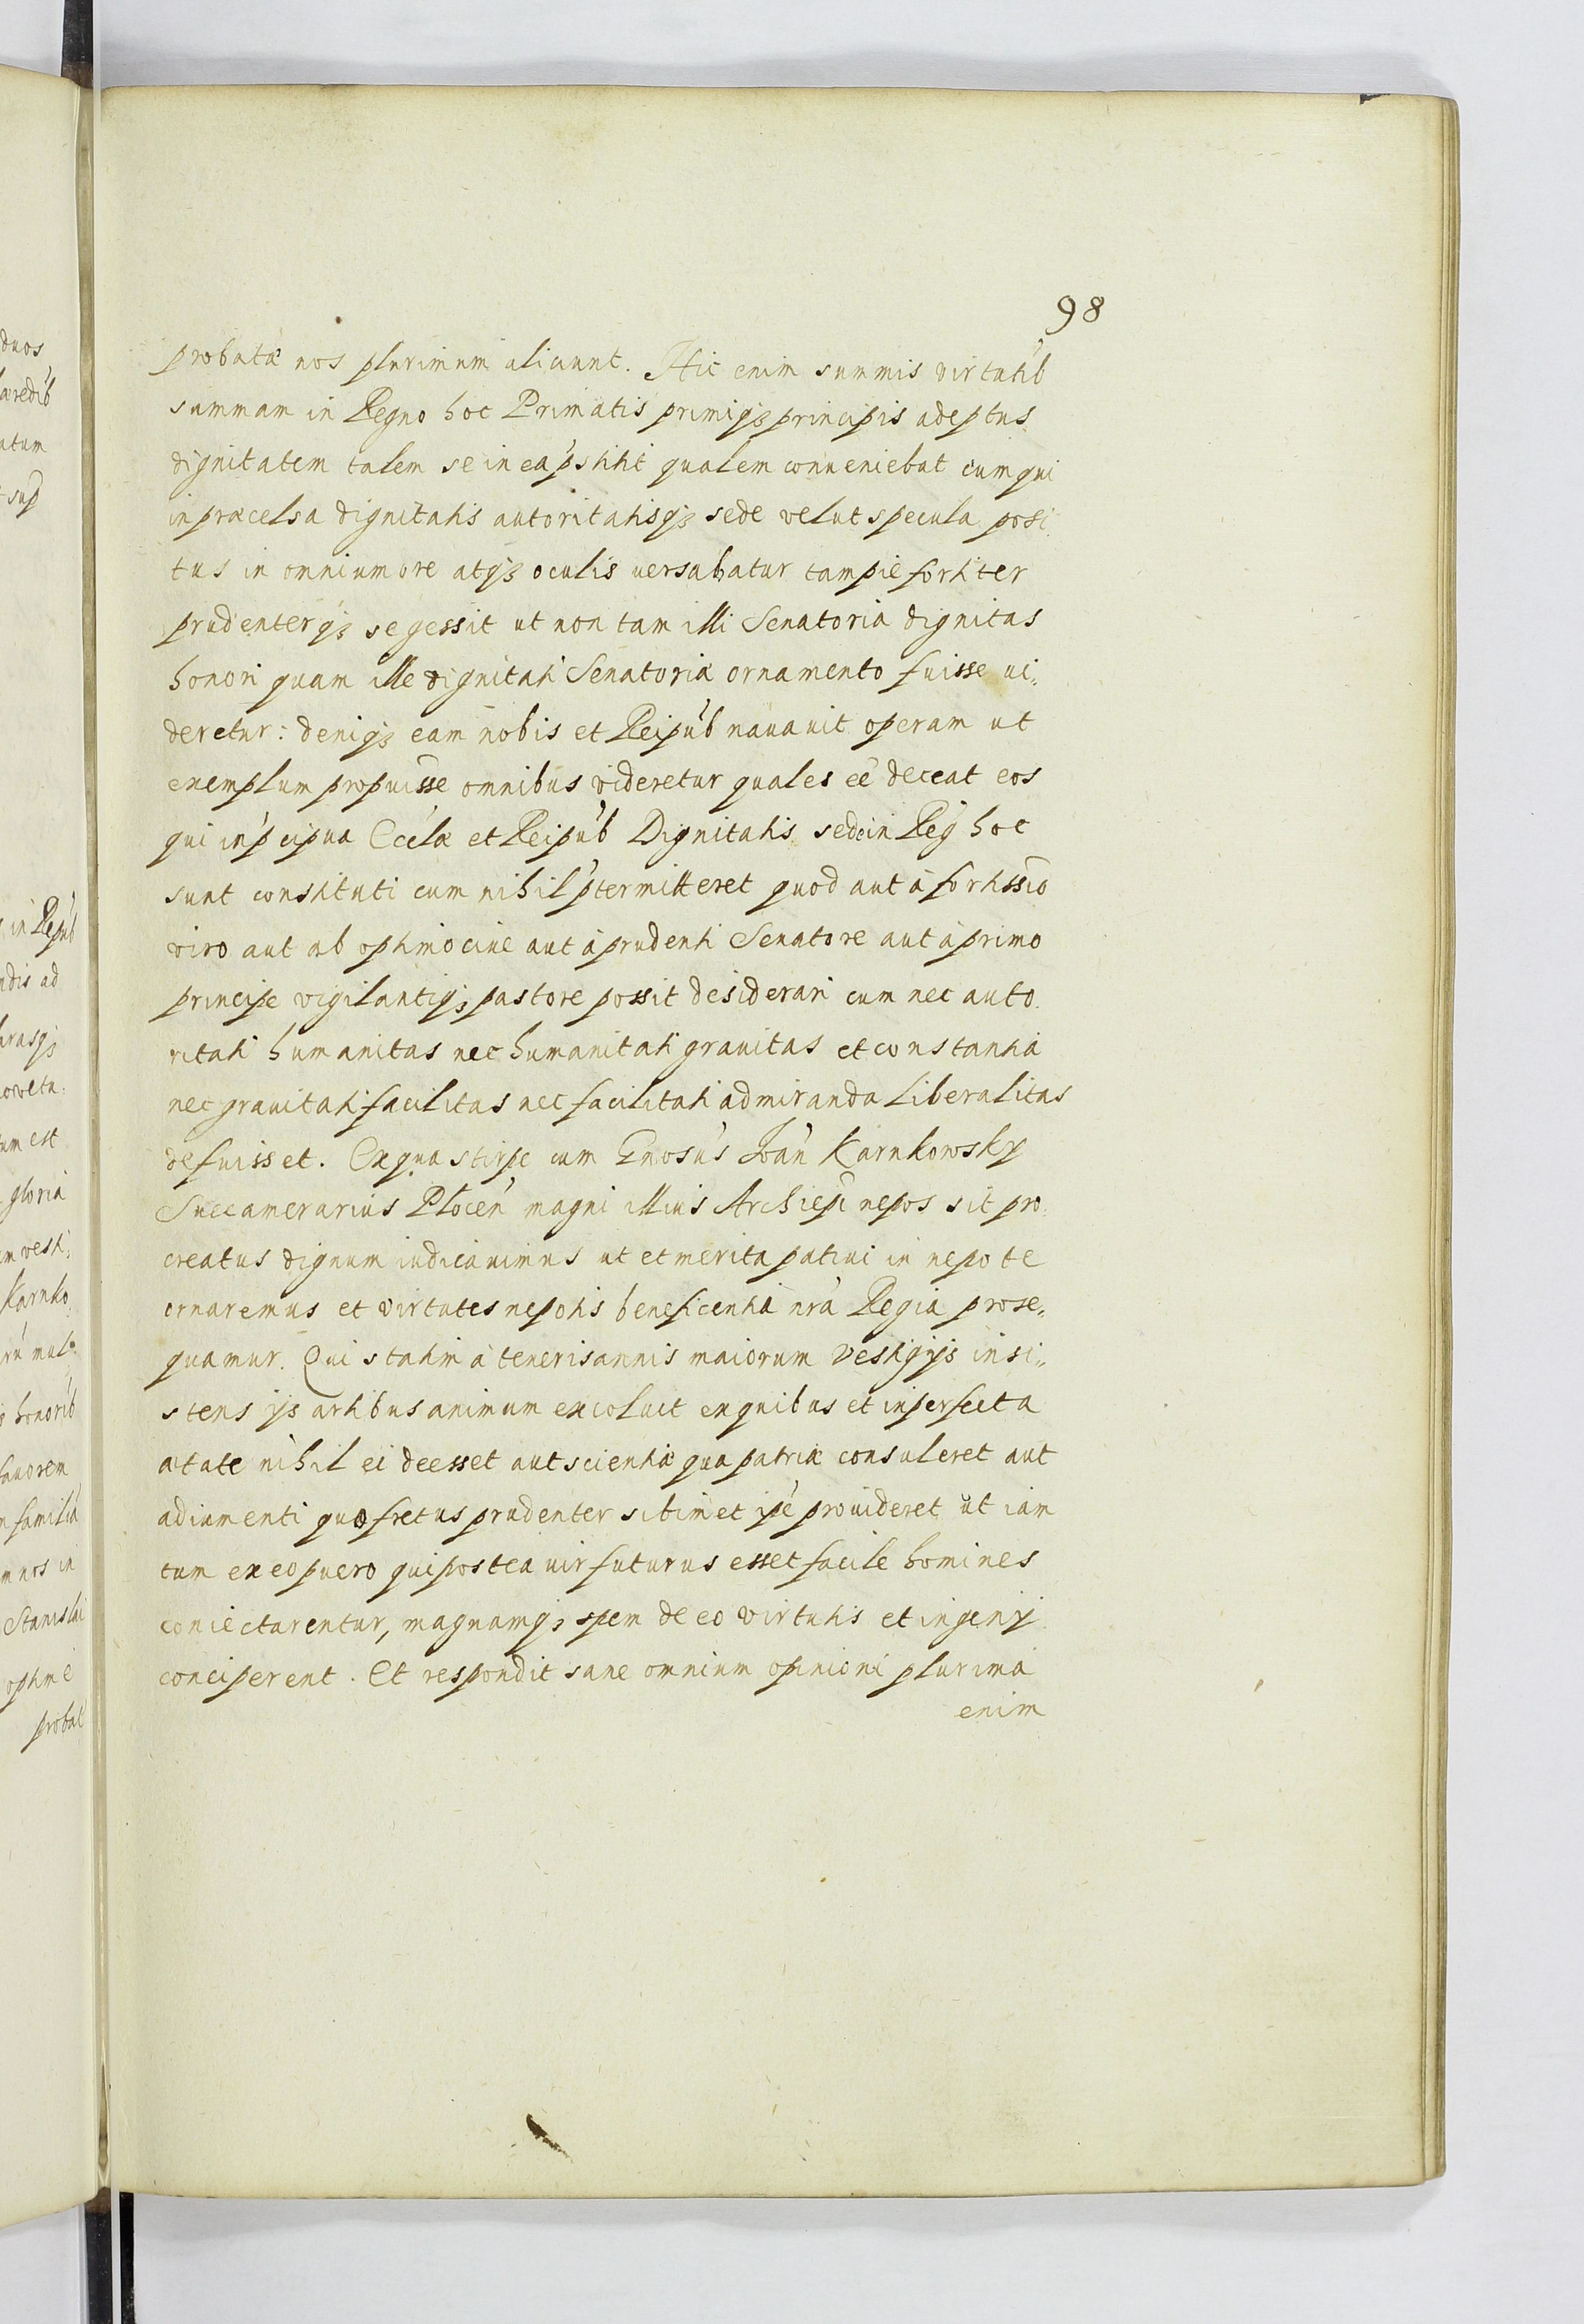 98
probatæ nos plurimum aliciunt. Hic enim summis virtutib
summam in Regno hoc Primatis primiqꝫ principis adeptus
dignitatem talem se in ea p̃stitit qualem conueniebat eum qui
in præcelsa dignitatis autoritatisqꝫ sede velut specula posi
tus in omnium ore atqꝫ oculis uersabatur tam pie fortiter
prudenterqꝫ se gessit ut non tam illi Senatoria dignitas
honori quam ille dignitati Senatoriæ ornamento fuisse ui„
deretur: deniqꝫ eam nobis et Reipub nauauit operam ut
exemplum propuisse omnibus videretur quales ee deceat eos
qui in p̃cipua Eccl̃æ et Reipub Dignitatis sede in Reg hoc
sunt constituti cum nihil p̃termitteret quod aut à fortissio
viro aut ab optimo ciue aut à prudenti Senatore aut à primo
principe vigilantiqꝫ pastore possit desiderari cum nec auto
ritati humanitas nec humanitati grauitas et constantia
nec grauitati facilitas nec facilitati admiranda liberalitas
defuisset. Ex qua stirpe cum Gnosus Ioan Karnkowsky
Succamerarius Plocen magni illius Archiepi nepos sit pro
creatus dignum iudicauimus ut et merita patrui in nepote
ornaremus et virtutes nepotis beneficentia nra Regia prose„
quamur. Qui statim à teneris annis maiorum vestigijs insi„
stens ijs artibus animum excoluit ex quibus et in perfecta
ætate nihil ei deesset aut scientiæ qua patriæ consuleret aut
adiumenti quo fretus prudenter sibimet ipe prouideret ut iam
tum ex eo puero qui postea uir futurus esset facile homines
coniectarentur, magnamqꝫ spem de eo virtutis et ingenij
conciperent. Et respondit sane omnium opinioni plurima
enim